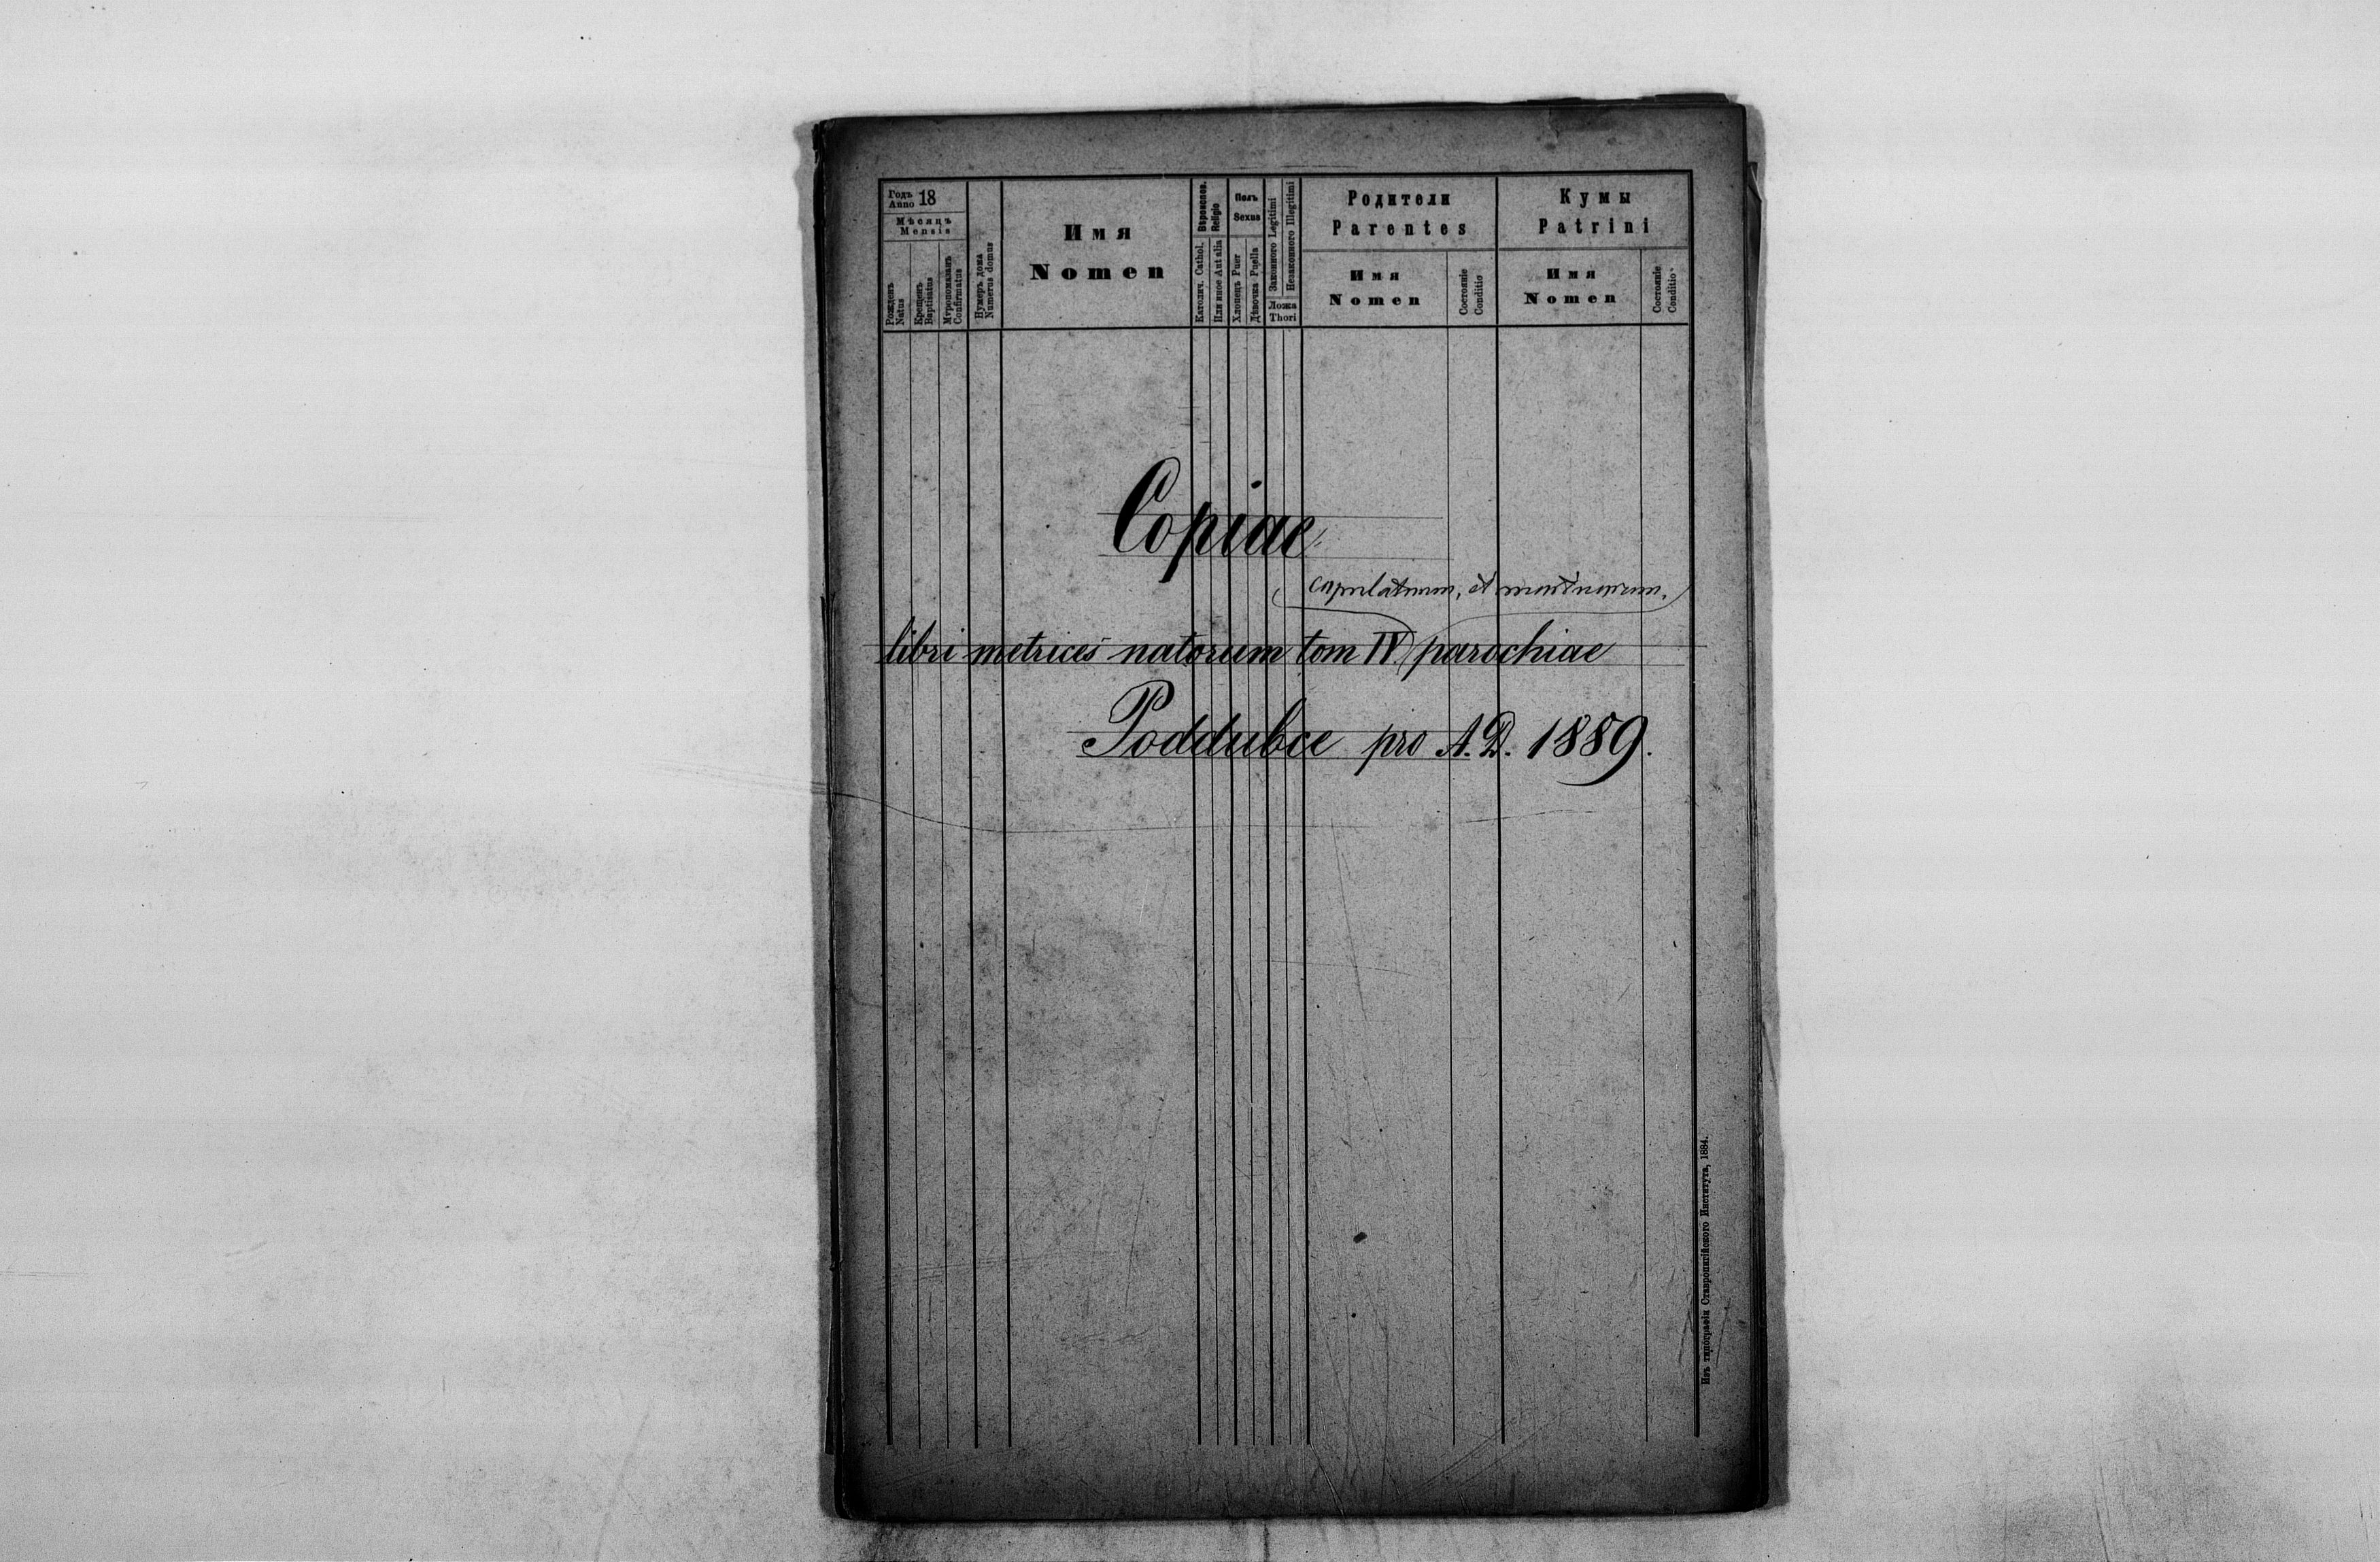 Годъ 18
Anno
Мѣсяцъ
Mensis
Рожденъ
Natus
Крещенъ
Baptisatus
Мѵропомазанъ
Confirmatus
Нумеръ дома
Numerus domus
Имя
Nomen
Вѣроисповѣд.
Religio
Католич. Cathol.
Или иное Aut alia
Полъ
Sexus
Хлопецъ Puer
Дѣвочка Puella
Законного Legitimi
Незаконного Illegitimi
Ложа
Thori
Родители
Parentes
Имя
Nomen
Состояніе
Conditio
Кумы
Patrini
Имя
Nomen
Состояніе
Conditio
Copiae
copulatorum, et mortuorum.
libri metrices natorum tom IV parochiae
Poddubce pro A. D. 1889.
Изъ типографіи Ставропигійского Института, 1884.